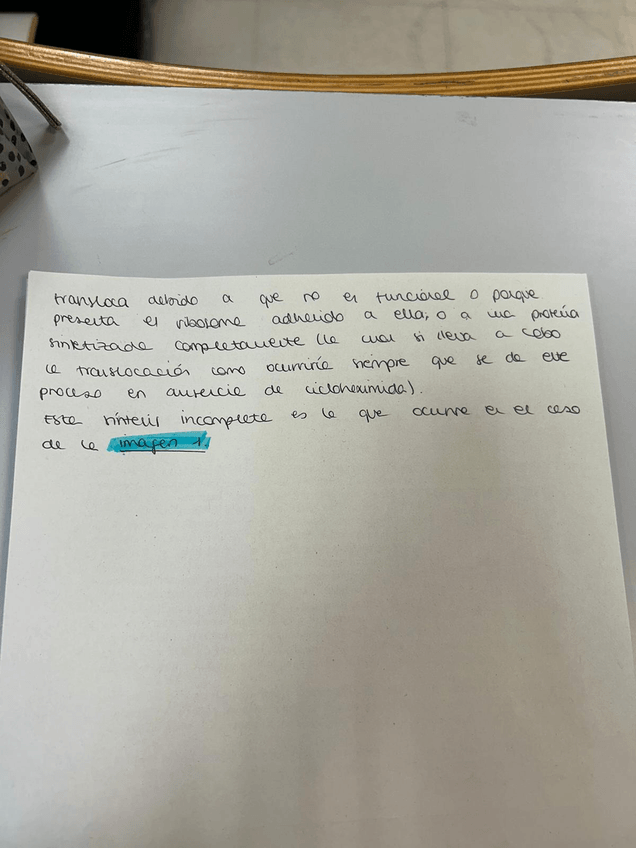 transloca debido a que no es funcional o porque
presenta el ribosoma adherido a ella; o a una proteína
sintetizada completamente (la cual si lleva a cabo
la translocación como ocurriría siempre que se de este
proceso en ausencia de cicloheximida).
Esta síntesis incompleta es la que ocurre en el caso
de la imagen 1.